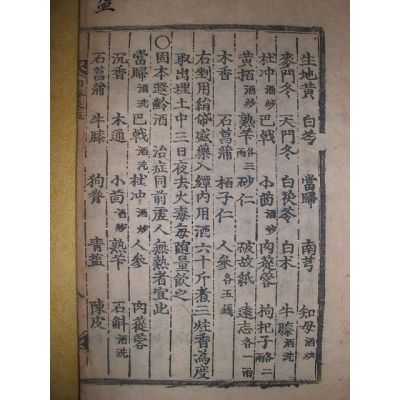 生地黃 白芍 當歸 南芎 知母酒炒
麥門冬 天門冬 白茯苓 白朮 牛膝酒洗
杜冲酒炒 巴戟 小茴酒炒 肉蓯蓉 枸杞子各二兩
黃栢酒炒 熟苄各三兩 砂仁 破故紙 遠志各一兩
木香 石菖蒲 栢子仁 人參各五錢
右剉用絹帒盛藥入罈內用酒六十斤煮三炷香為度
取出埋土中三日夜去火毒每隨量飲之
○固本遐齡酒 治症同前虛人無熱者宜此
當歸酒洗 巴戟酒洗 杜冲酒炒 人參 肉蓯蓉
沉香 木通 小茴酒炒 熟苄 石斛酒洗
石菖蒲 牛膝 狗脊 青盐 陳皮